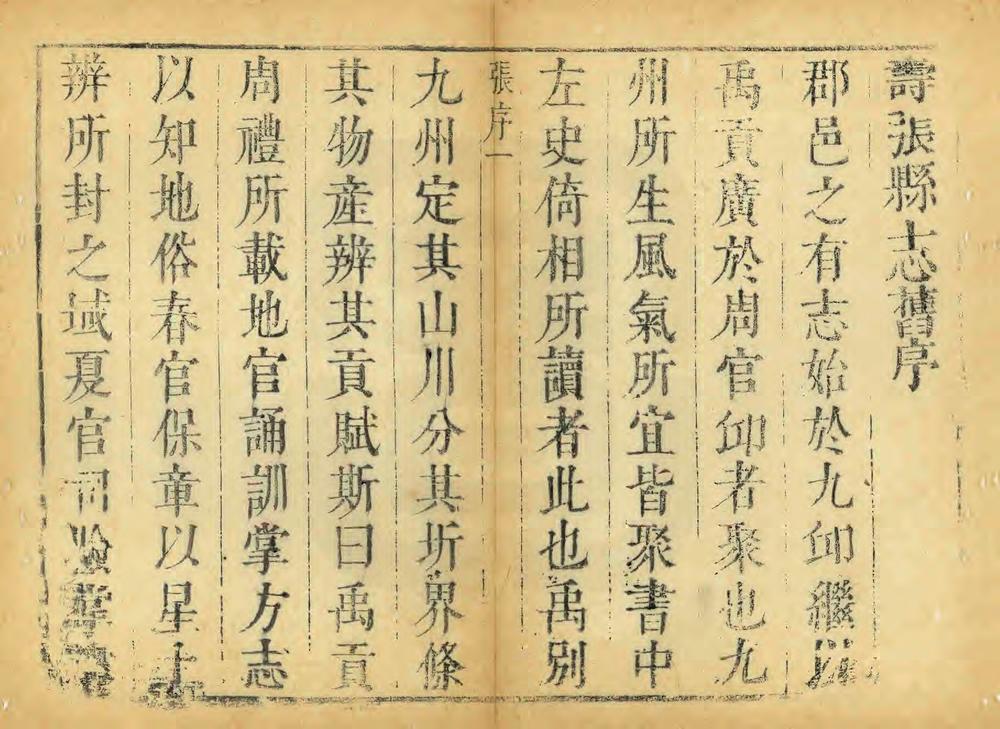 壽張縣志舊序
郡邑之有志始於九邱繼以
禹貢廣於周官邱者聚也九
州所生風氣所宜皆聚書中
左史倚相所讀者此也禹別
張序一
九州定其山川分其圻界條
其物產辨其貢賦斯曰禹貢
周禮所載地官誦訓掌方志
以知地俗春官保章以星土
辨所封之域夏官司險掌